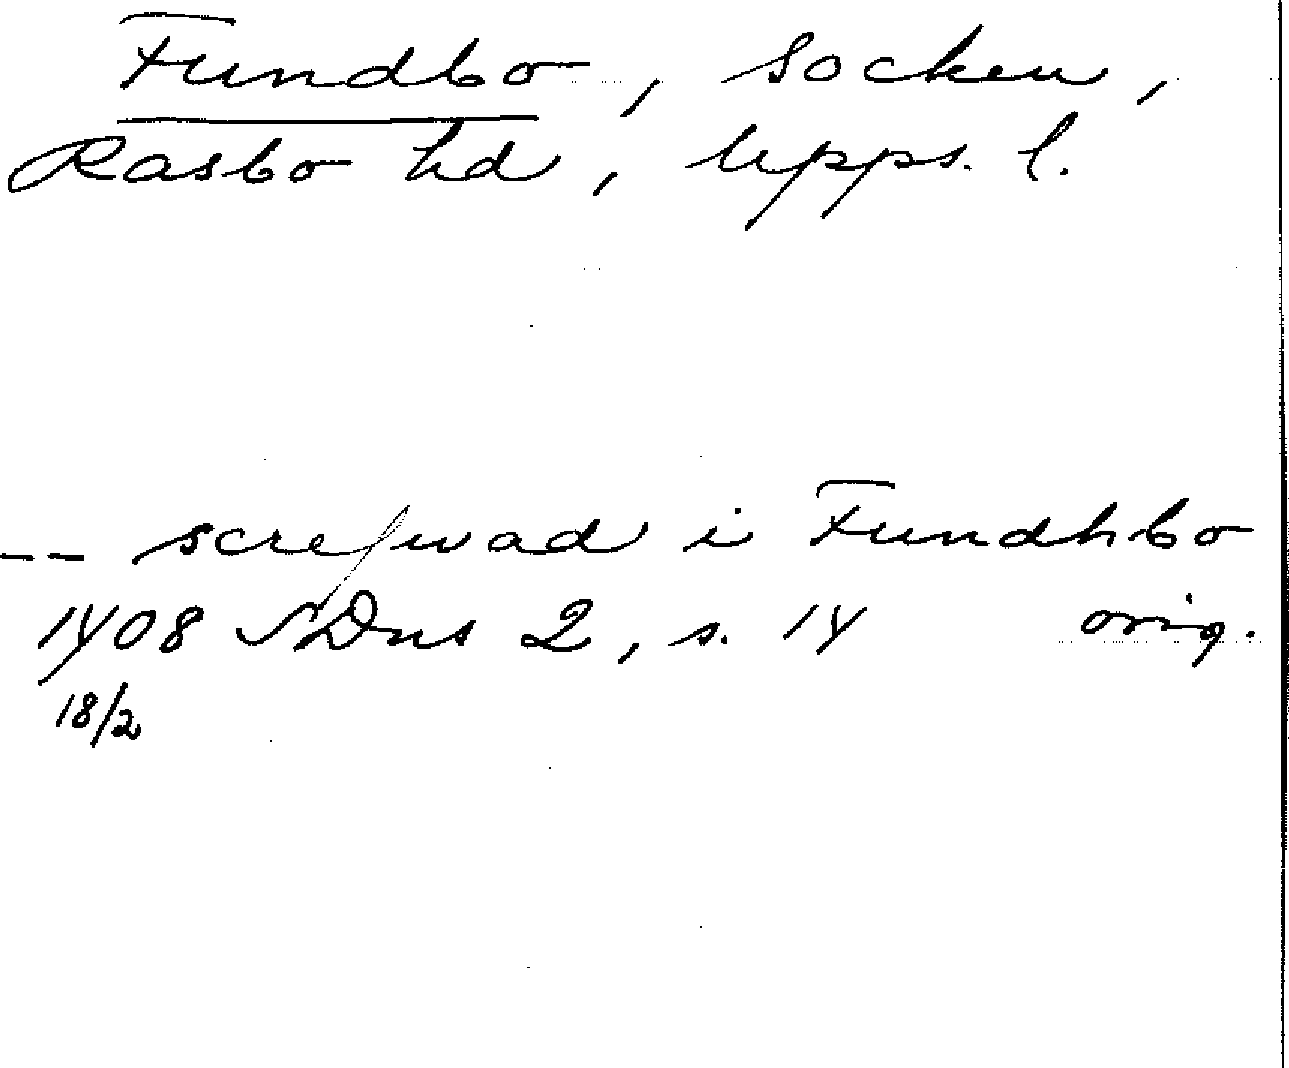 Fundbo, socken,
Rasbo hd, Upps. l.
-- screfwad i Fundhbo
1408 SDns 2, s. 14 orig.
18/2